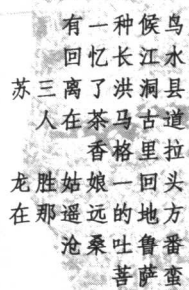 有一种候鸟
回忆长江水
苏三离了洪洞县
人在茶马古道
香格里拉
龙胜姑娘一回头
在那遥远的地方
沧桑吐鲁番
菩萨蛮